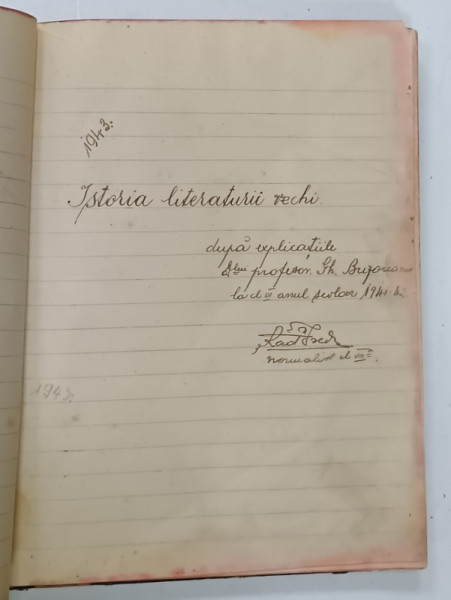 1943.
Istoria literaturii vechi.
după explicațiile
Dlui profesor, Gh.
la cl VI anul școlar 1941-42
normalist cl VII
1943.